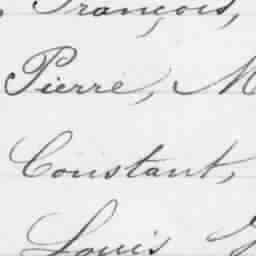 François,
Pierre, M
Constant,
Louis